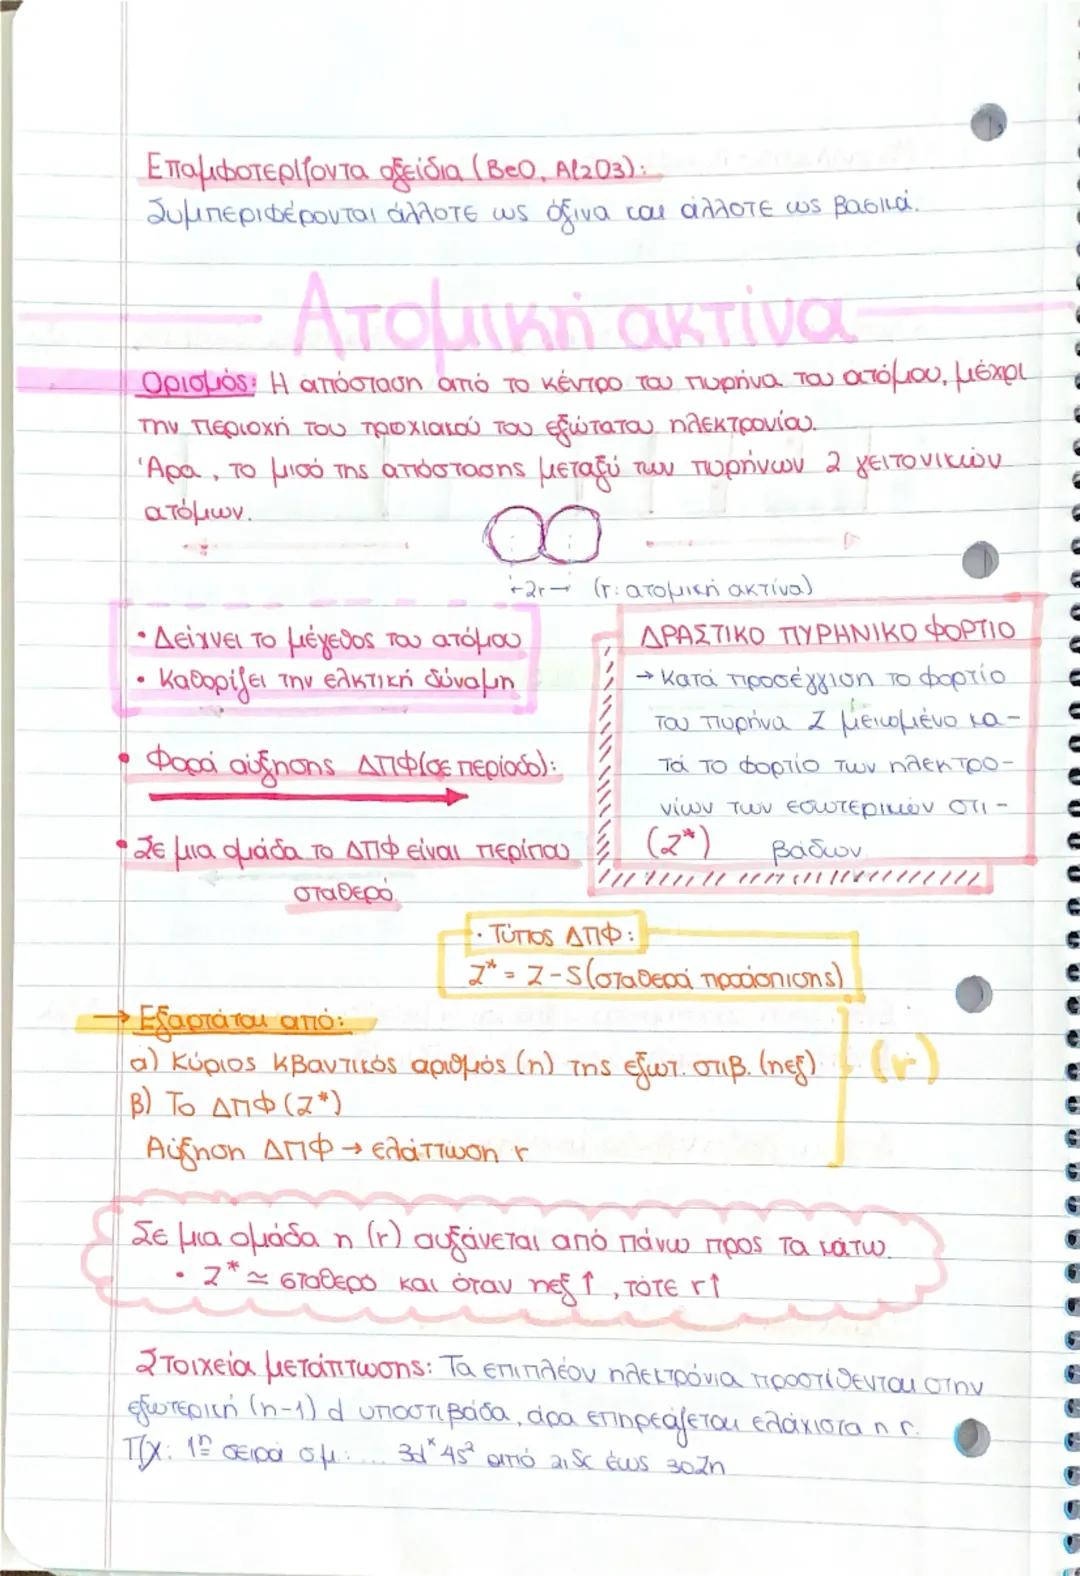 Επαμφοτερίζοντα οξείδια (BeO, Al2O3):
Συμπεριφέρονται άλλοτε ως όξινα και άλλοτε ως βασικά.
Ατομική ακτίνα
Ορισμός: Η απόσταση από το κέντρο του πυρήνα του ατόμου, μέχρι
την περιοχή του τροχιακού του εξώτατου ηλεκτρονίου.
Άρα, το μισό της απόστασης μεταξύ των πυρήνων 2 γειτονικών
ατόμων.
←2r→ (r: ατομική ακτίνα)
• Δείχνει το μέγεθος του ατόμου
• Καθορίζει την ελκτική δύναμη
ΔΡΑΣΤΙΚΟ ΠΥΡΗΝΙΚΟ ΦΟΡΤΙΟ
→ Κατά προσέγγιση το φορτίο
του πυρήνα Z μειωμένο κα-
τά το φορτίο των ηλεκτρο-
νίων των εσωτερικών στι-
(Z*) βάδων
• Φορά αύξησης ΔΠΦ(σε περίοδο):
• Σε μια ομάδα το ΔΠΦ είναι περίπου
σταθερό.
• Τύπος ΔΠΦ:
Z* = Z - S(σταθερά προάσπισης)
→ Εξαρτάται από:
α) Κύριος κβαντικός αριθμός (n) της εξωτ. στιβ. (nεξ)
(r)
β) Το ΔΠΦ (Z*)
Αύξηση ΔΠΦ → ελάττωση r
Σε μια ομάδα η (r) αυξάνεται από πάνω προς τα κάτω.
• Z* ≃ σταθερό και όταν nεξ ↑, τότε r↑
Στοιχεία μετάπτωσης: Τα επιπλέον ηλεκτρόνια προστίθενται στην
εξωτερική (n-1) d υποστιβάδα, άρα επηρεάζεται ελάχιστα η r.
Π.χ: 1η σειρά σ.μ: ... 3dˣ 4s² από 21Sc έως 30Zn